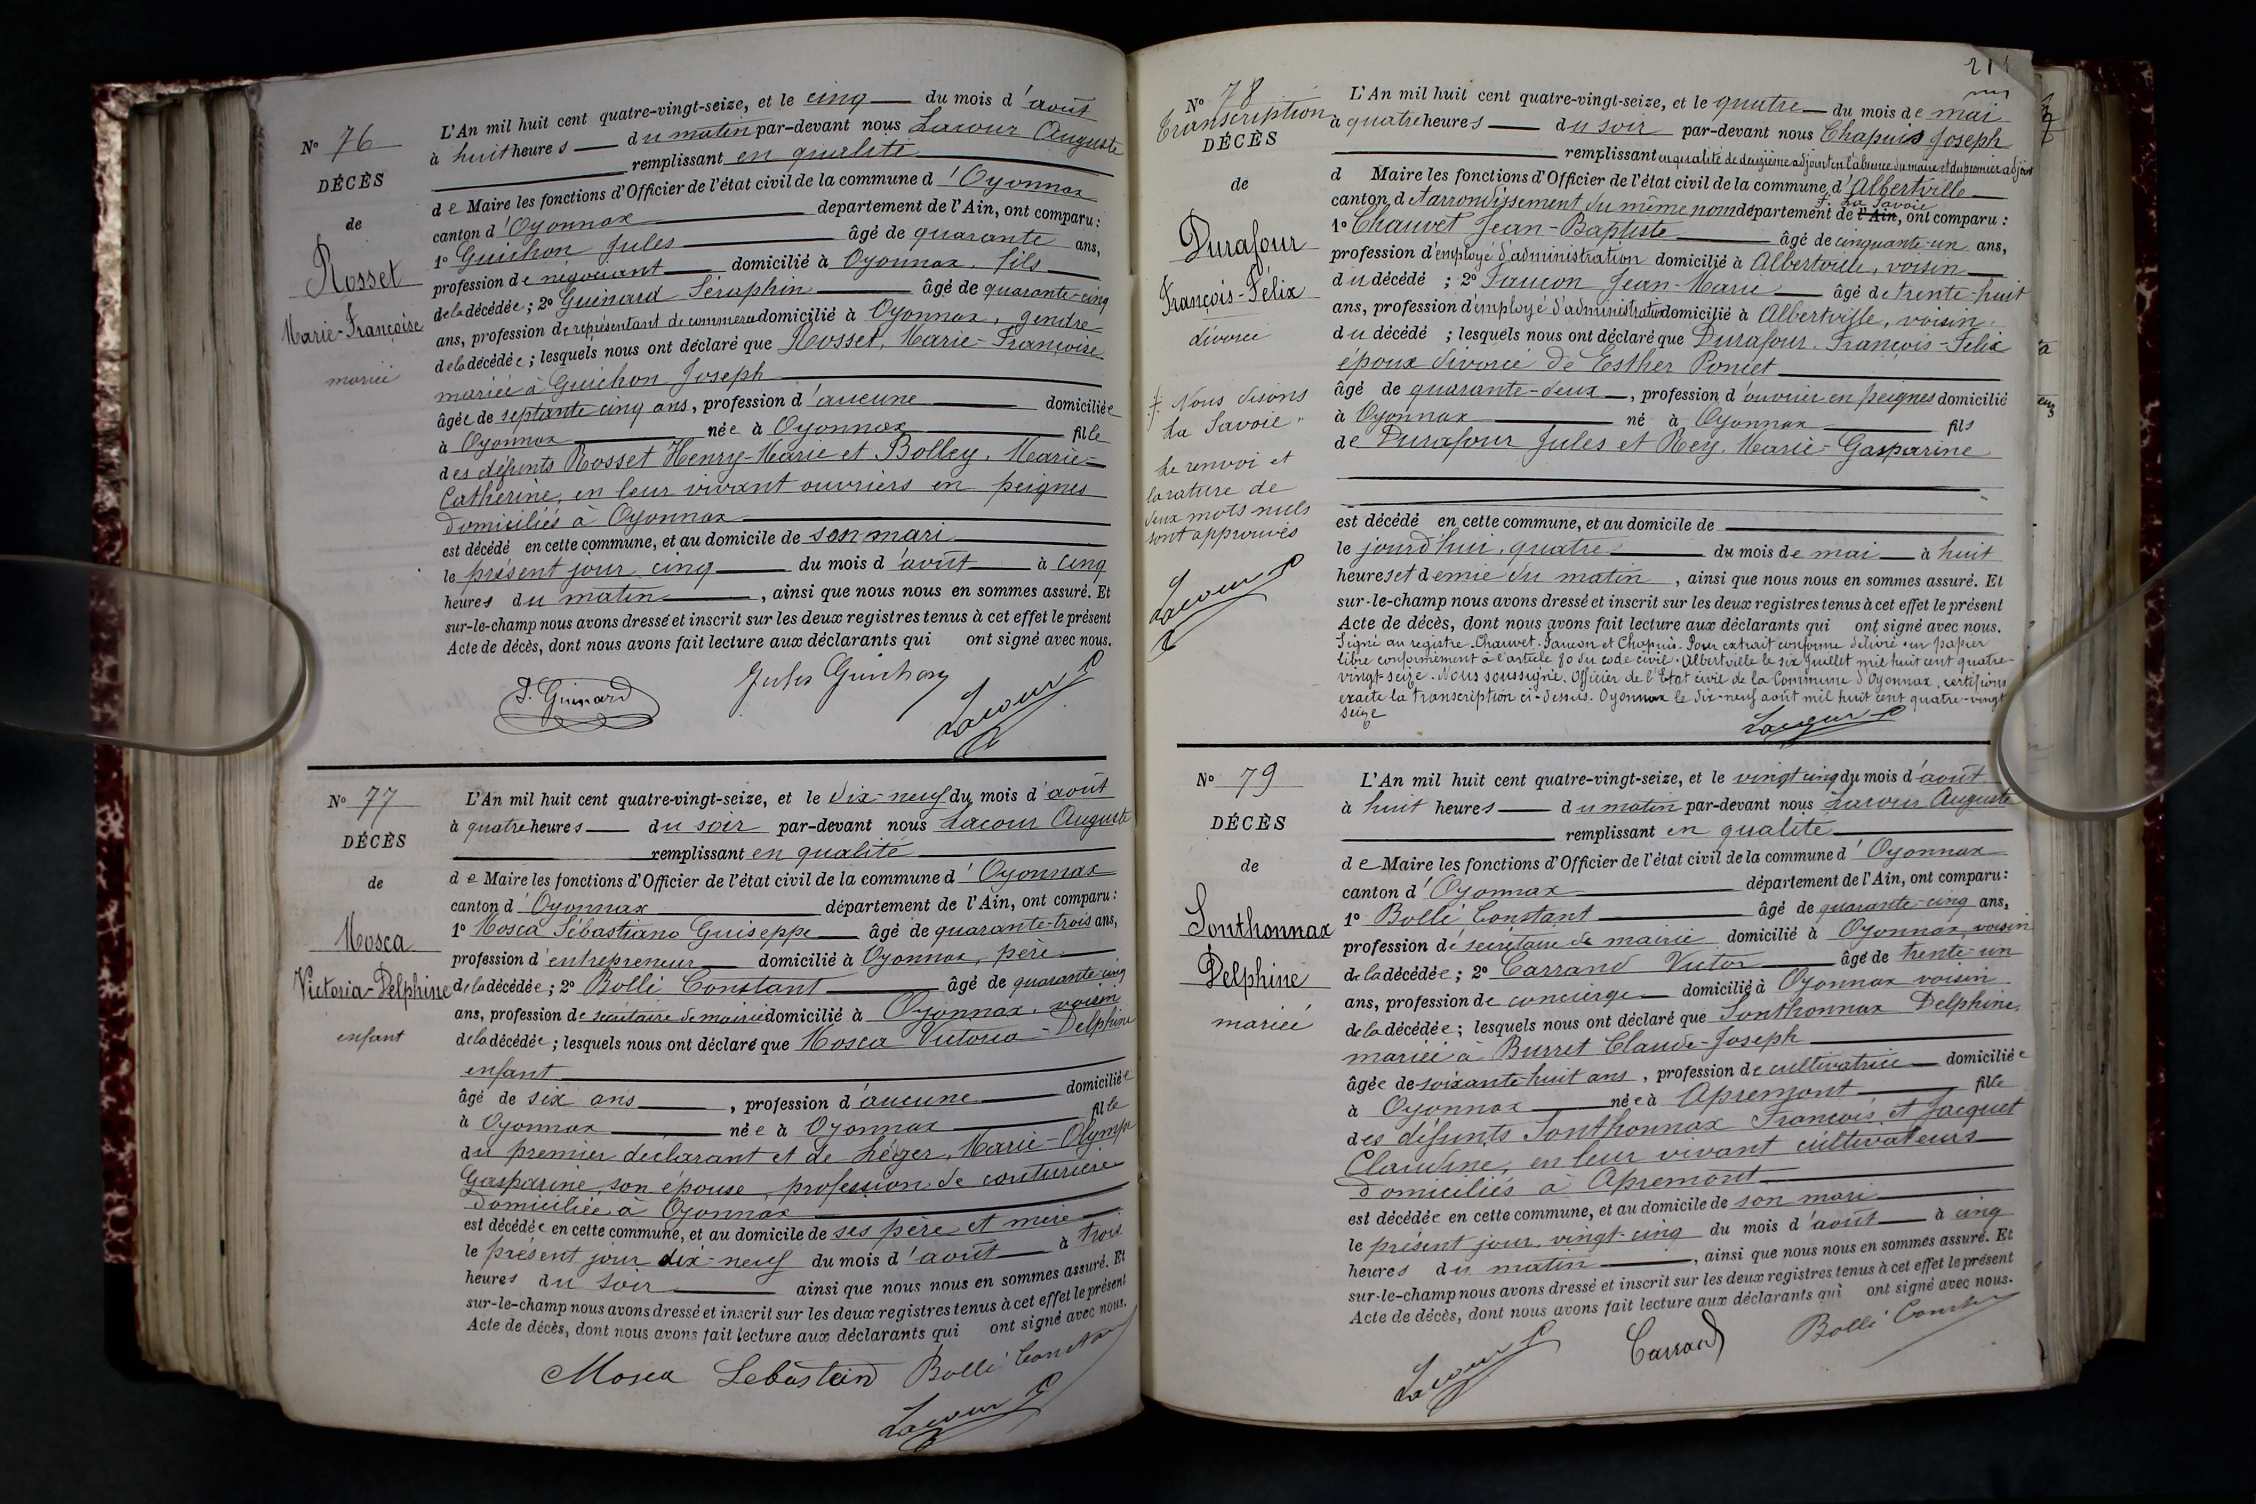 N° 76
DÉCÈS
de
Rosset
Marie-Françoise
mariée
L'An mil huit cent quatre-vingt-seize, et le cinq du mois d'août
à huit heures du matin par-devant nous Lacour Auguste
remplissant en qualité
de Maire les fonctions d'Officier de l'état civil de la commune d'Oyonnax
canton d'Oyonnax département de l'Ain, ont comparu :
1° Guichon Jules âgé de quarante ans,
profession de négociant domicilié à Oyonnax, fils
de la décédée ; 2° Guinard Séraphin âgé de quarante-cinq
ans, profession de représentant de commerce domicilié à Oyonnax, gendre
de la décédée ; lesquels nous ont déclaré que Rosset, Marie-Françoise
mariée à Guichon Joseph
âgée de septante cinq ans, profession d'aucune domiciliée
à Oyonnax née à Oyonnax fille
des défunts Rosset Henry-Marie et Bolley, Marie-
Catherine, en leur vivant ouvriers en peignes
domiciliés à Oyonnax
est décédé en cette commune, et au domicile de son mari
le présent jour cinq du mois d'août à cinq
heures du matin, ainsi que nous nous en sommes assuré. Et
sur-le-champ nous avons dressé et inscrit sur les deux registres tenus à cet effet le présent
Acte de décès, dont nous avons fait lecture aux déclarants qui ont signé avec nous.
S. Guinard Jules Guichon Lacour
N° 77
DÉCÈS
de
Mosca
Victoria-Delphine
enfant
L'An mil huit cent quatre-vingt-seize, et le dix-neuf du mois d'août
à quatre heures du soir par-devant nous Lacour Auguste
remplissant en qualité
de Maire les fonctions d'Officier de l'état civil de la commune d'Oyonnax
canton d'Oyonnax département de l'Ain, ont comparu :
1° Mosca Sébastiano Guiseppe âgé de quarante-trois ans,
profession d'entrepreneur domicilié à Oyonnax, père
de la décédée ; 2° Bolli Constant âgé de quarante-cinq
ans, profession de secrétaire de mairie domicilié à Oyonnax, voisin
de la décédée ; lesquels nous ont déclaré que Mosca Victoria-Delphine
enfant
âgé de six ans, profession d'aucune domiciliée
à Oyonnax née à Oyonnax fille
du premier déclarant et de Léger, Marie-Olympe
Gasparine, son épouse, profession de couturière
domiciliée à Oyonnax
est décédée en cette commune, et au domicile de ses père et mère
le présent jour dix-neuf du mois d'août à trois
heures du soir ainsi que nous nous en sommes assuré. Et
sur-le-champ nous avons dressé et inscrit sur les deux registres tenus à cet effet le présent
Acte de décès, dont nous avons fait lecture aux déclarants qui ont signé avec nous.
Mosca Sebastian Bolli Constant
Lacour
N° 78
Transcription
DÉCÈS
de
Durafour
François-Félix
divorcé
‡ Nous disons
"La Savoie"
Le renvoi et
la rature de
deux mots nuls
sont approuvés
Lacour
L'An mil huit cent quatre-vingt-seize, et le quatre du mois de mai
à quatre heures du soir par-devant nous Chapuis Joseph
remplissant en qualité de deuxième adjoint en l'absence du maire et du premier adjoint
d Maire les fonctions d'Officier de l'état civil de la commune d'Albertville
canton et arrondissement du même nom département de l'Ain, ‡ La Savoie ont comparu :
1° Chauvet Jean-Baptiste âgé de cinquante-un ans,
profession d'employé d'administration domicilié à Albertville, voisin
du décédé ; 2° Faucon Jean-Marie âgé de trente-huit
ans, profession d'employé d'administration domicilié à Albertville, voisin
du décédé ; lesquels nous ont déclaré que Durafour, François-Félix
époux divorcé de Esther Poncet
âgé de quarante-deux, profession d'ouvrier en peignes domicilié
à Oyonnax né à Oyonnax fils
de Durafour Jules et Rey, Marie-Gasparine
est décédé en cette commune, et au domicile de
le jourd'hui, quatre du mois de mai à huit
heures et demie du matin, ainsi que nous nous en sommes assuré. Et
sur-le-champ nous avons dressé et inscrit sur les deux registres tenus à cet effet le présent
Acte de décès, dont nous avons fait lecture aux déclarants qui ont signé avec nous.
Signé au registre. Chauvet. Faucon et Chapuis. Pour extrait conforme délivré sur papier
libre conformément à l'article 80 du code civil. Albertville le six juillet mil huit cent quatre-
vingt-seize. Nous soussigné, Officier de l'Etat civil de la Commune d'Oyonnax, certifions
exacte la transcription ci-dessus. Oyonnax le dix-neuf août mil huit cent quatre-vingt
seize
Lacour
N° 79
DÉCÈS
de
Sonthonnax
Delphine
mariée
L'An mil huit cent quatre-vingt-seize, et le vingt cinq du mois d'août
à huit heures du matin par-devant nous Lacour Auguste
remplissant en qualité
de Maire les fonctions d'Officier de l'état civil de la commune d'Oyonnax
canton d'Oyonnax département de l'Ain, ont comparu :
1° Bolli Constant âgé de quarante-cinq ans,
profession de secrétaire de mairie domicilié à Oyonnax, voisin
de la décédée ; 2° Carrand Victor âgé de trente-un
ans, profession de concierge domicilié à Oyonnax voisin
de la décédée ; lesquels nous ont déclaré que Sonthonnax Delphine,
mariée à Burret Claude-Joseph
âgée de soixante-huit ans, profession de cultivatrice domiciliée
à Oyonnax née à Apremont fille
des défunts Sonthonnax François et Jacquet
Claudine, en leur vivant cultivateurs
domiciliés à Apremont
est décédée en cette commune, et au domicile de son mari
le présent jour, vingt-cinq du mois d'août à cinq
heures du matin, ainsi que nous nous en sommes assuré. Et
sur-le-champ nous avons dressé et inscrit sur les deux registres tenus à cet effet le présent
Acte de décès, dont nous avons fait lecture aux déclarants qui ont signé avec nous.
Lacour Carrand Bolli Constant